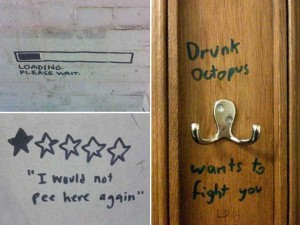 LOADING
PLEASE WAIT.
"I would not
pee here again"
Drunk
Octopus
wants to
fight you